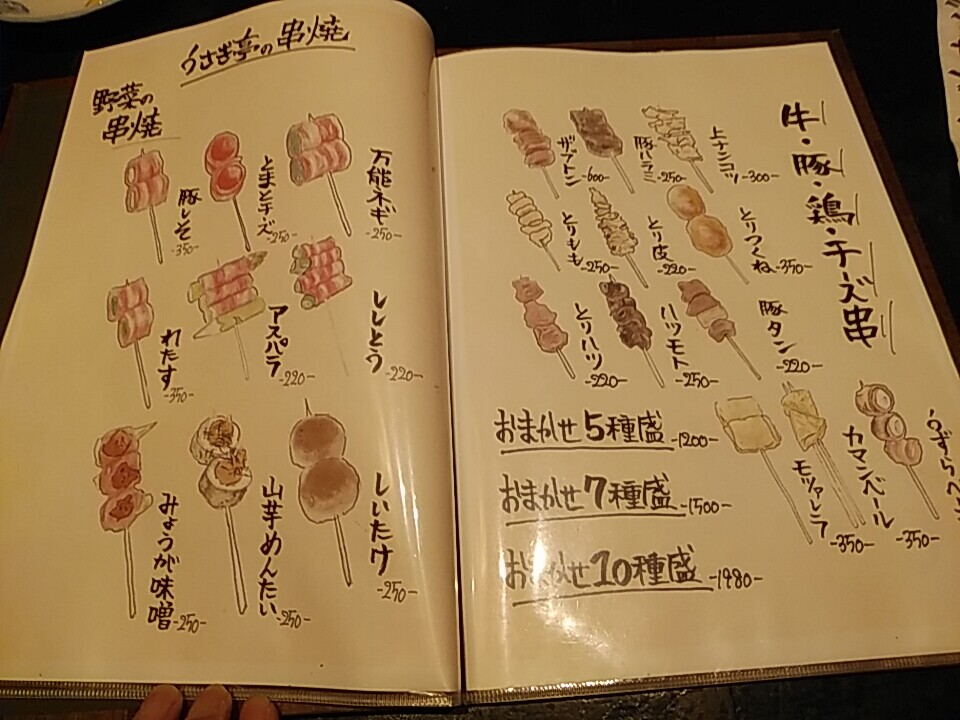 うさぎ亭の串焼
野菜の
串焼
万能ネギ
-250-
とまとチーズ
-250-
豚しそ
-350-
ししとう
-220-
アスパラ
-220-
れたす
-350-
しいたけ
-250-
山芋めんたい
-250-
みょうが味噌
-250-
牛・豚・鶏・チーズ串
上ナンコツ
-300-
豚ハラミ
-250-
ザブトン
-600-
とりつくね
-350-
とり皮
-220-
とりもも
-250-
豚タン
-220-
ハツモト
-250-
とりハツ
-220-
うずらベ
-350-
カマンベール
-350-
モッツァレラ
おまかせ5種盛 -1200-
おまかせ7種盛 -1500-
おまかせ10種盛 -1980-